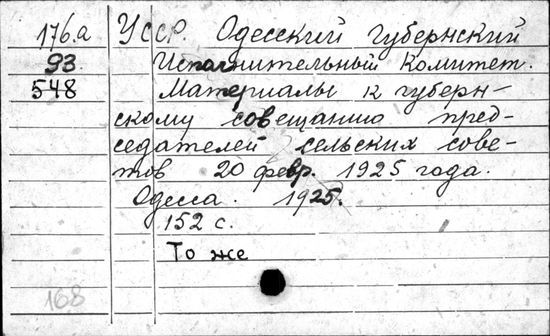 176.a УССР. Одесский Губернский
93 Исполнительный Комитет.
548 Материалы к губерн-
скому совещанию пред-
седателей сельских сове-
тов 20 февр. 1925 года.
Одесса. 1925.
152 с.
То же
168